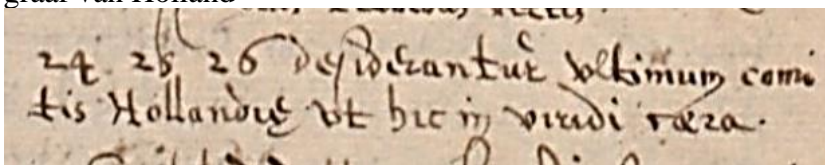 24 25 26 desiderantur ultimum comi
tis Hollandię ut hic in viridi cæra.